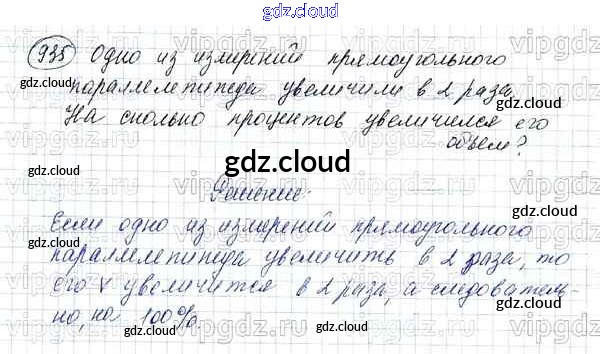 gdz.cloud
935 Одно из измерений прямоугольного
параллелепипеда увеличили в 2 раза.
На сколько процентов увеличился его
объем?
gdz.cloud
Решение:
Если одно из измерений прямоугольного
параллелепипеда увеличить в 2 раза, то
его V увеличится в 2 раза, а следователь-
но, на 100%.